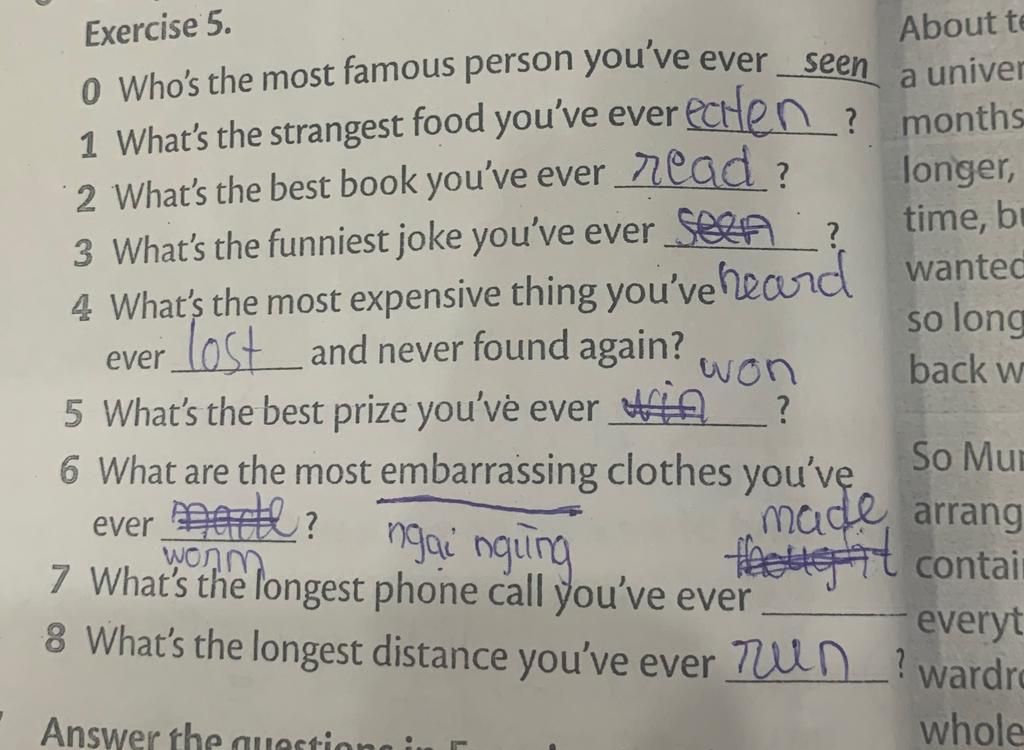 Exercise 5.
0 Who's the most famous person you've ever seen
1 What's the strangest food you've ever eaten ?
2 What's the best book you've ever read ?
3 What's the funniest joke you've ever seen ?
heard
4 What's the most expensive thing you've
ever lost and never found again?
won
5 What's the best prize you've ever win ?
6 What are the most embarrassing clothes you've
ever made ?
worn
ngại ngùng
made
thought
7 What's the longest phone call you've ever
8 What's the longest distance you've ever run ?
Answer the questions in
About
a
months
longer,
time,
wanted
so long
back
So
everyt
whole